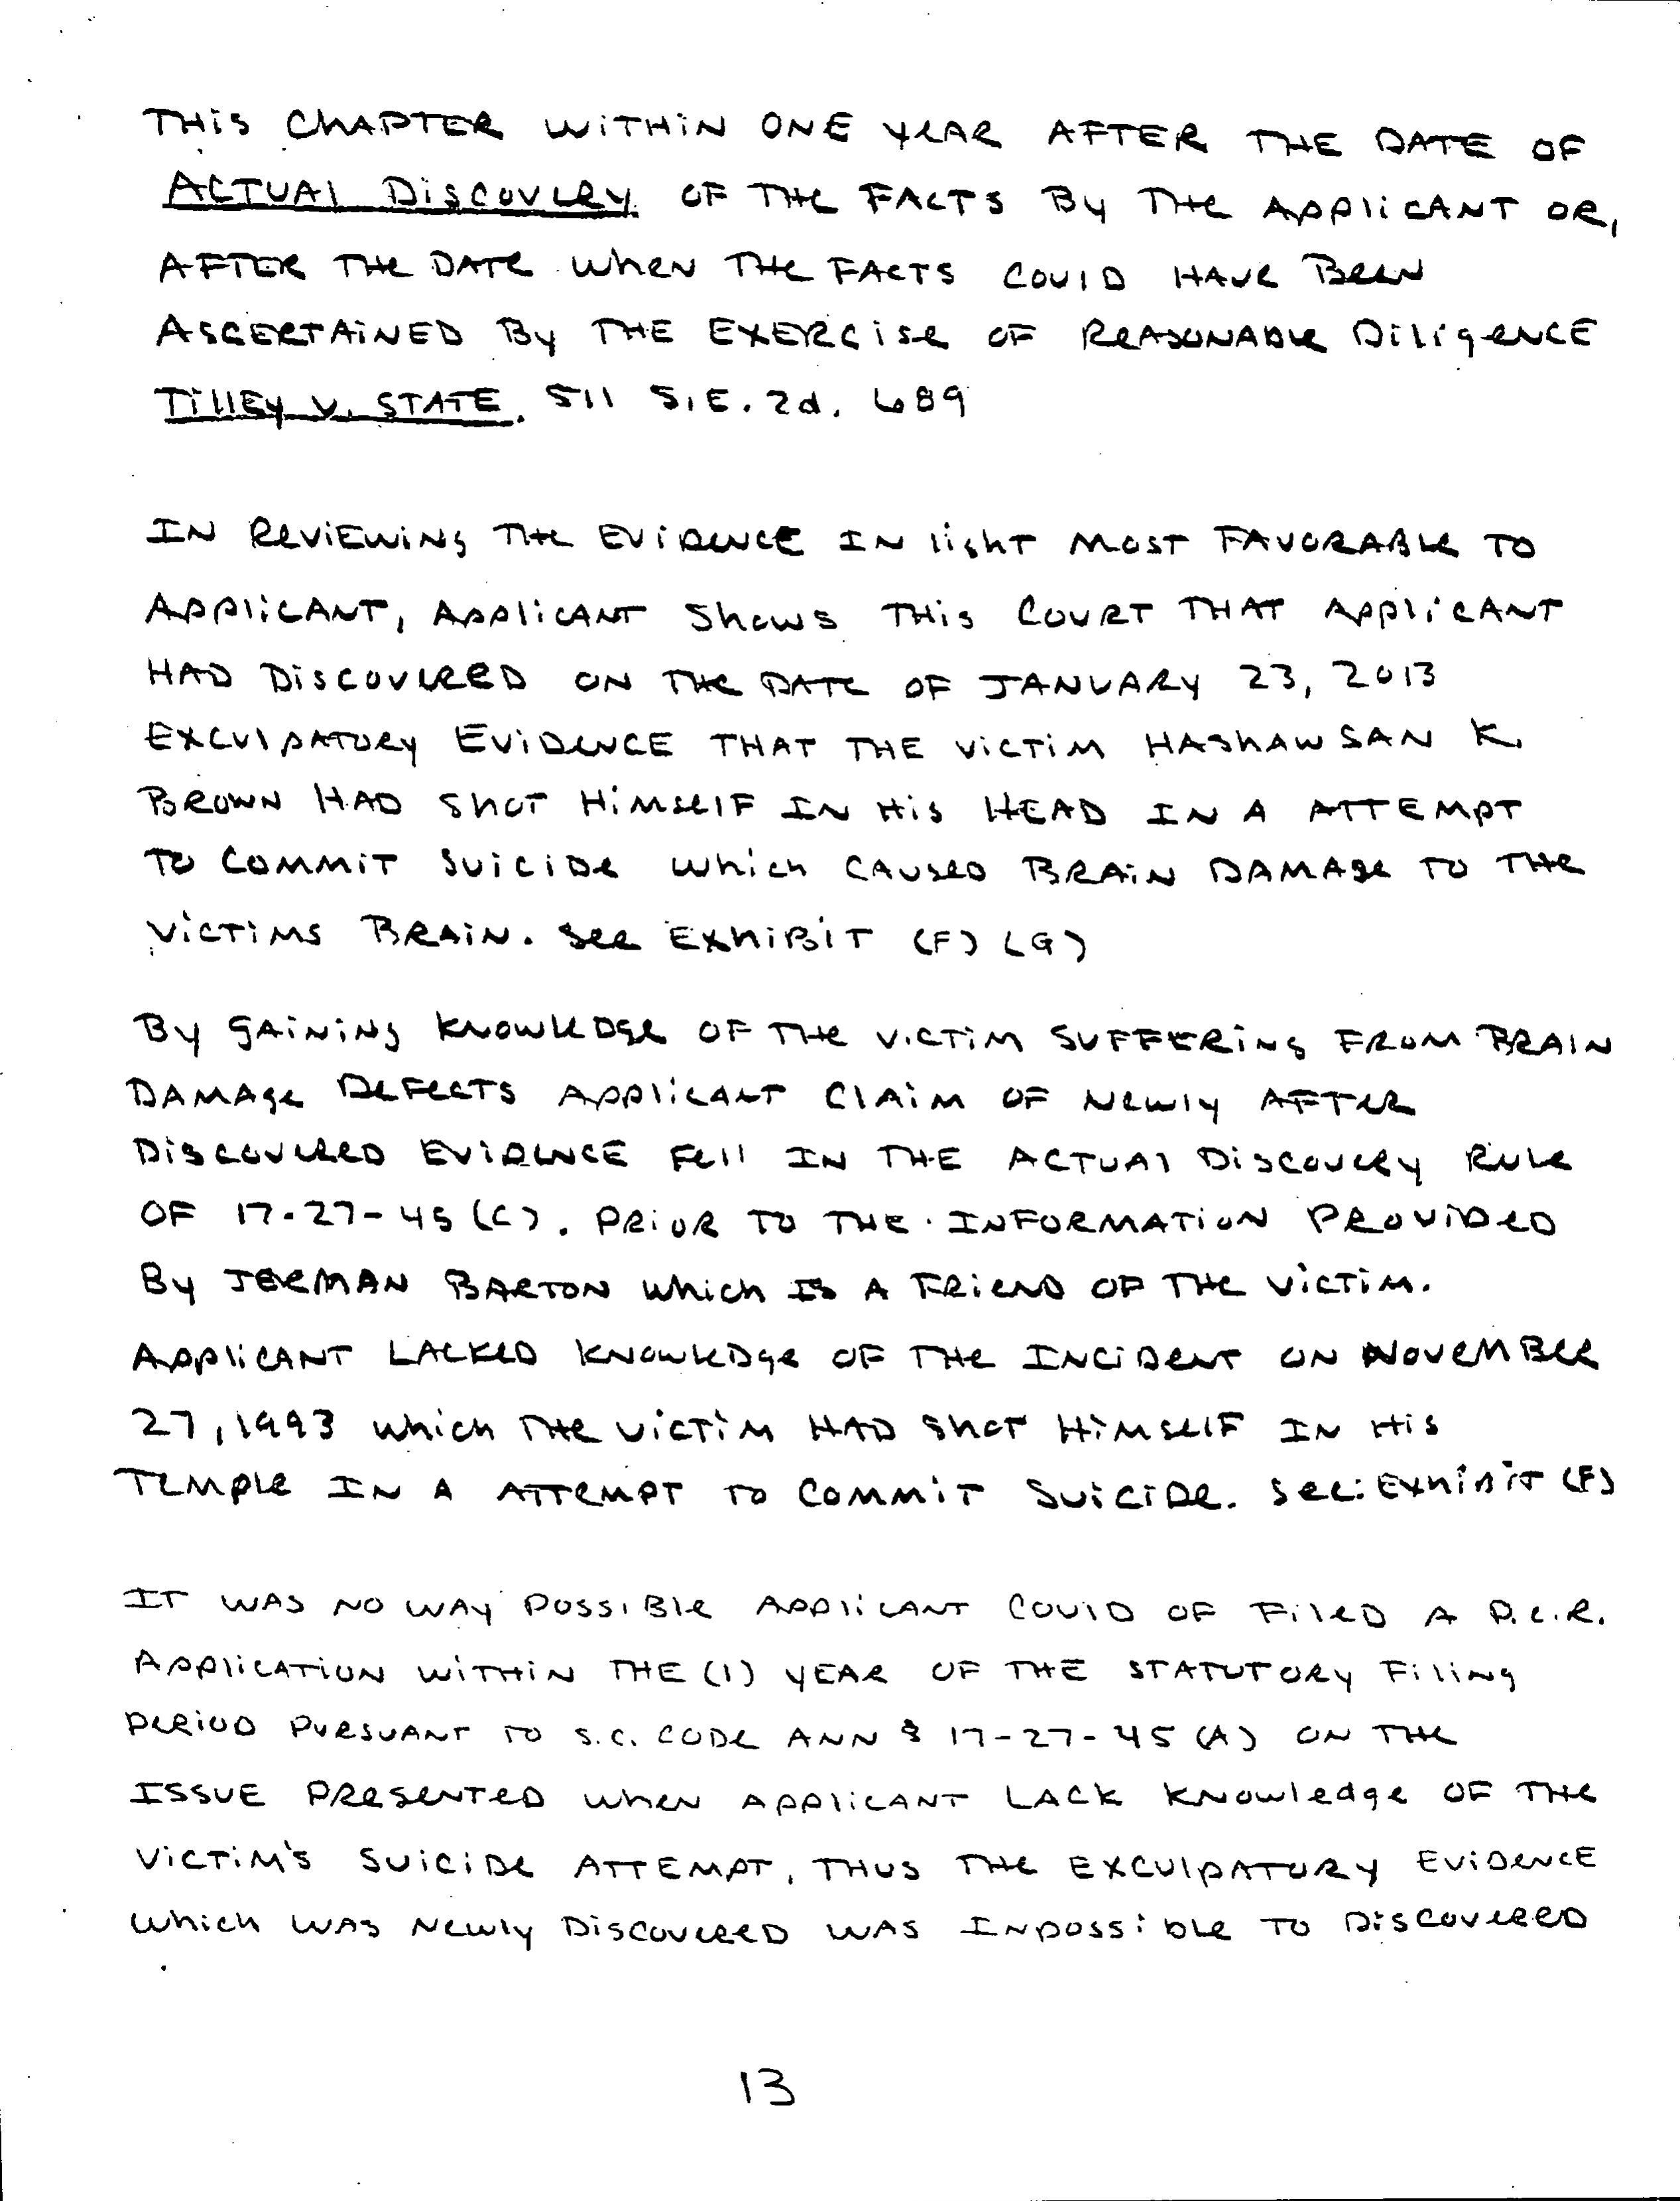 THIS CHAPTER WITHIN ONE YEAR AFTER THE DATE OF
ACTUAL DISCOVERY OF THE FACTS BY THE APPLICANT OR,
AFTER THE DATE WHEN THE FACTS COULD HAVE BEEN
ASCERTAINED BY THE EXERCISE OF REASONABLE DILIGENCE
TILLEY V. STATE, 511 S.E. 2d. 689
IN REVIEWING THE EVIDENCE IN LIGHT MOST FAVORABLE TO
APPLICANT, APPLICANT SHOWS THIS COURT THAT APPLICANT
HAD DISCOVERED ON THE DATE OF JANUARY 23, 2013
EXCULPATORY EVIDENCE THAT THE VICTIM HASHAWSAN K.
BROWN HAD SHOT HIMSELF IN HIS HEAD IN A ATTEMPT
TO COMMIT SUICIDE WHICH CAUSED BRAIN DAMAGE TO THE
VICTIMS BRAIN. SEE EXHIBIT (F) (G)
BY GAINING KNOWLEDGE OF THE VICTIM SUFFERING FROM BRAIN
DAMAGE DEFECTS APPLICANT CLAIM OF NEWLY AFTER
DISCOVERED EVIDENCE FELL IN THE ACTUAL DISCOVERY RULE
OF 17-27-45 (C). PRIOR TO THE INFORMATION PROVIDED
BY JERMAN BARTON WHICH IS A FRIEND OF THE VICTIM.
APPLICANT LACKED KNOWLEDGE OF THE INCIDENT ON NOVEMBER
27, 1993 WHICH THE VICTIM HAD SHOT HIMSELF IN HIS
TEMPLE IN A ATTEMPT TO COMMIT SUICIDE. SEE: EXHIBIT (F)
IT WAS NO WAY POSSIBLE APPLICANT COULD OF FILED A P.C.R.
APPLICATION WITHIN THE (1) YEAR OF THE STATUTORY FILING
PERIOD PURSUANT TO S.C. CODE ANN § 17-27-45 (A) ON THE
ISSUE PRESENTED WHEN APPLICANT LACK KNOWLEDGE OF THE
VICTIM'S SUICIDE ATTEMPT, THUS THE EXCULPATORY EVIDENCE
WHICH WAS NEWLY DISCOVERED WAS INPOSSIBLE TO DISCOVERED
13